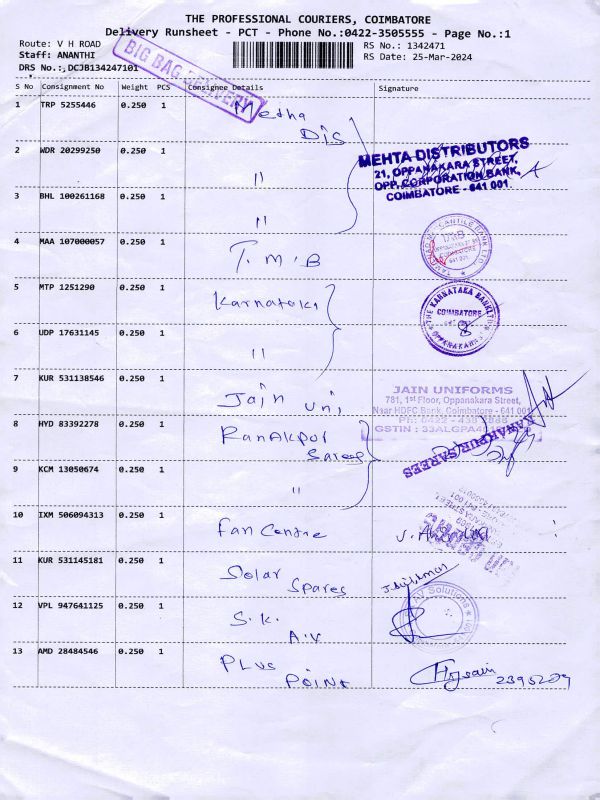 THE PROFESSIONAL COURIERS, COIMBATORE
Delivery Runsheet - PCT - Phone No.:0422-3505555 - Page No.:1
Route: V H ROAD
RS No.: 1342471
Staff: ANANTHI
RS Date: 25-Mar-2024
DRS No.:,DCJB134247101
BIG BAG DELIVERY
S No Consignment No Weight PCS Consignee Details Signature
1 TRP 5255446 0.250 1 Meetha
Dis
2 WDR 20299250 0.250 1 "
MEHTA DISTRIBUTORS
21, OPPANAKARA STREET,
OPP. CORPORATION BANK,
COIMBATORE - 641 001.
3 BHL 100261168 0.250 1 "
4 MAA 107000057 0.250 1 T.M.B
TAMILNAD MERCANTILE BANK LTD
COIMBATORE
641 001
5 MTP 1251290 0.250 1 Karnataka
THE KARNATAKA BANK LTD
COIMBATORE
OPPANAKARA
6 UDP 17631145 0.250 1 "
7 KUR 531138546 0.250 1 Jain Uni
JAIN UNIFORMS
781, 1st Floor, Oppanakara Street,
Near HDFC Bank, Coimbatore - 641 001
Ph: 0422 - 438
GSTIN : 33ALGPA
8 HYD 83392278 0.250 1 Ranakpur
Sarees
RANAKPUR SAREES
9 KCM 13050674 0.250 1 "
10 IXM 506094313 0.250 1 Fan Centre
11 KUR 531145181 0.250 1 Solar
Spares
12 VPL 947641125 0.250 1 S.K.
A.V
Solutions
13 AMD 28484546 0.250 1 Plus
Point
Hussain
2395209